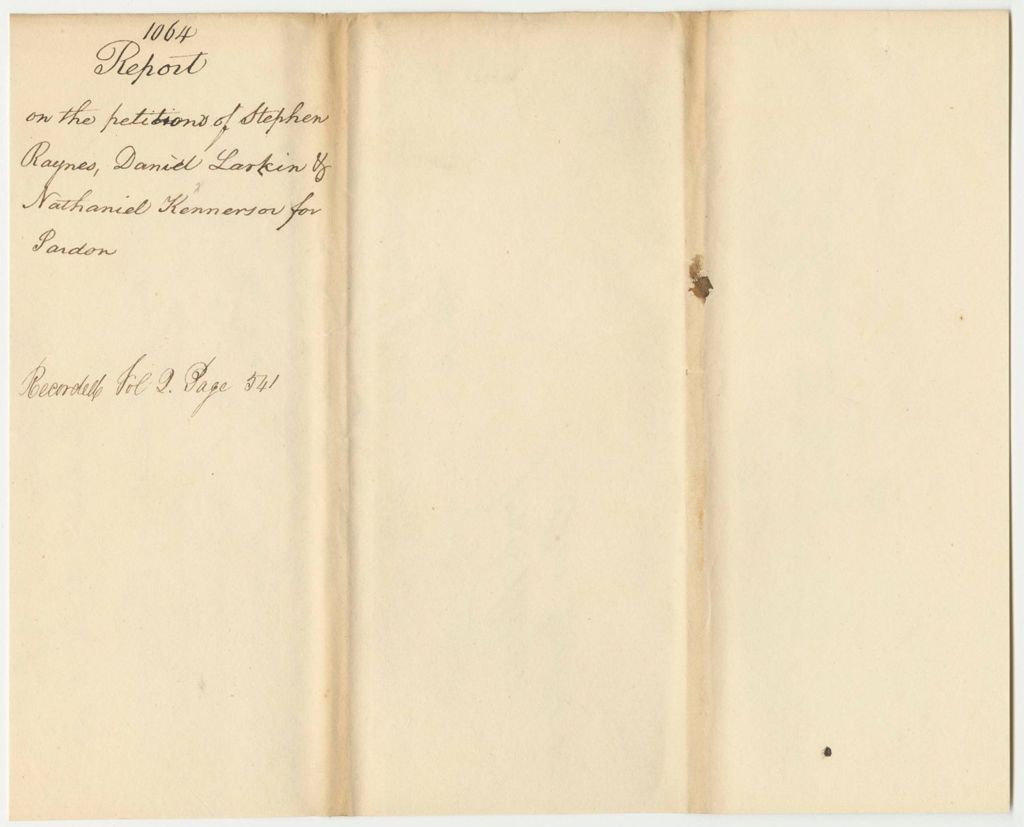 1064
Report
on the petitions of Stephen
Raynes, Daniel Larkin &
Nathaniel Kennerson for
Pardon
Recorded Vol 2. Page 541